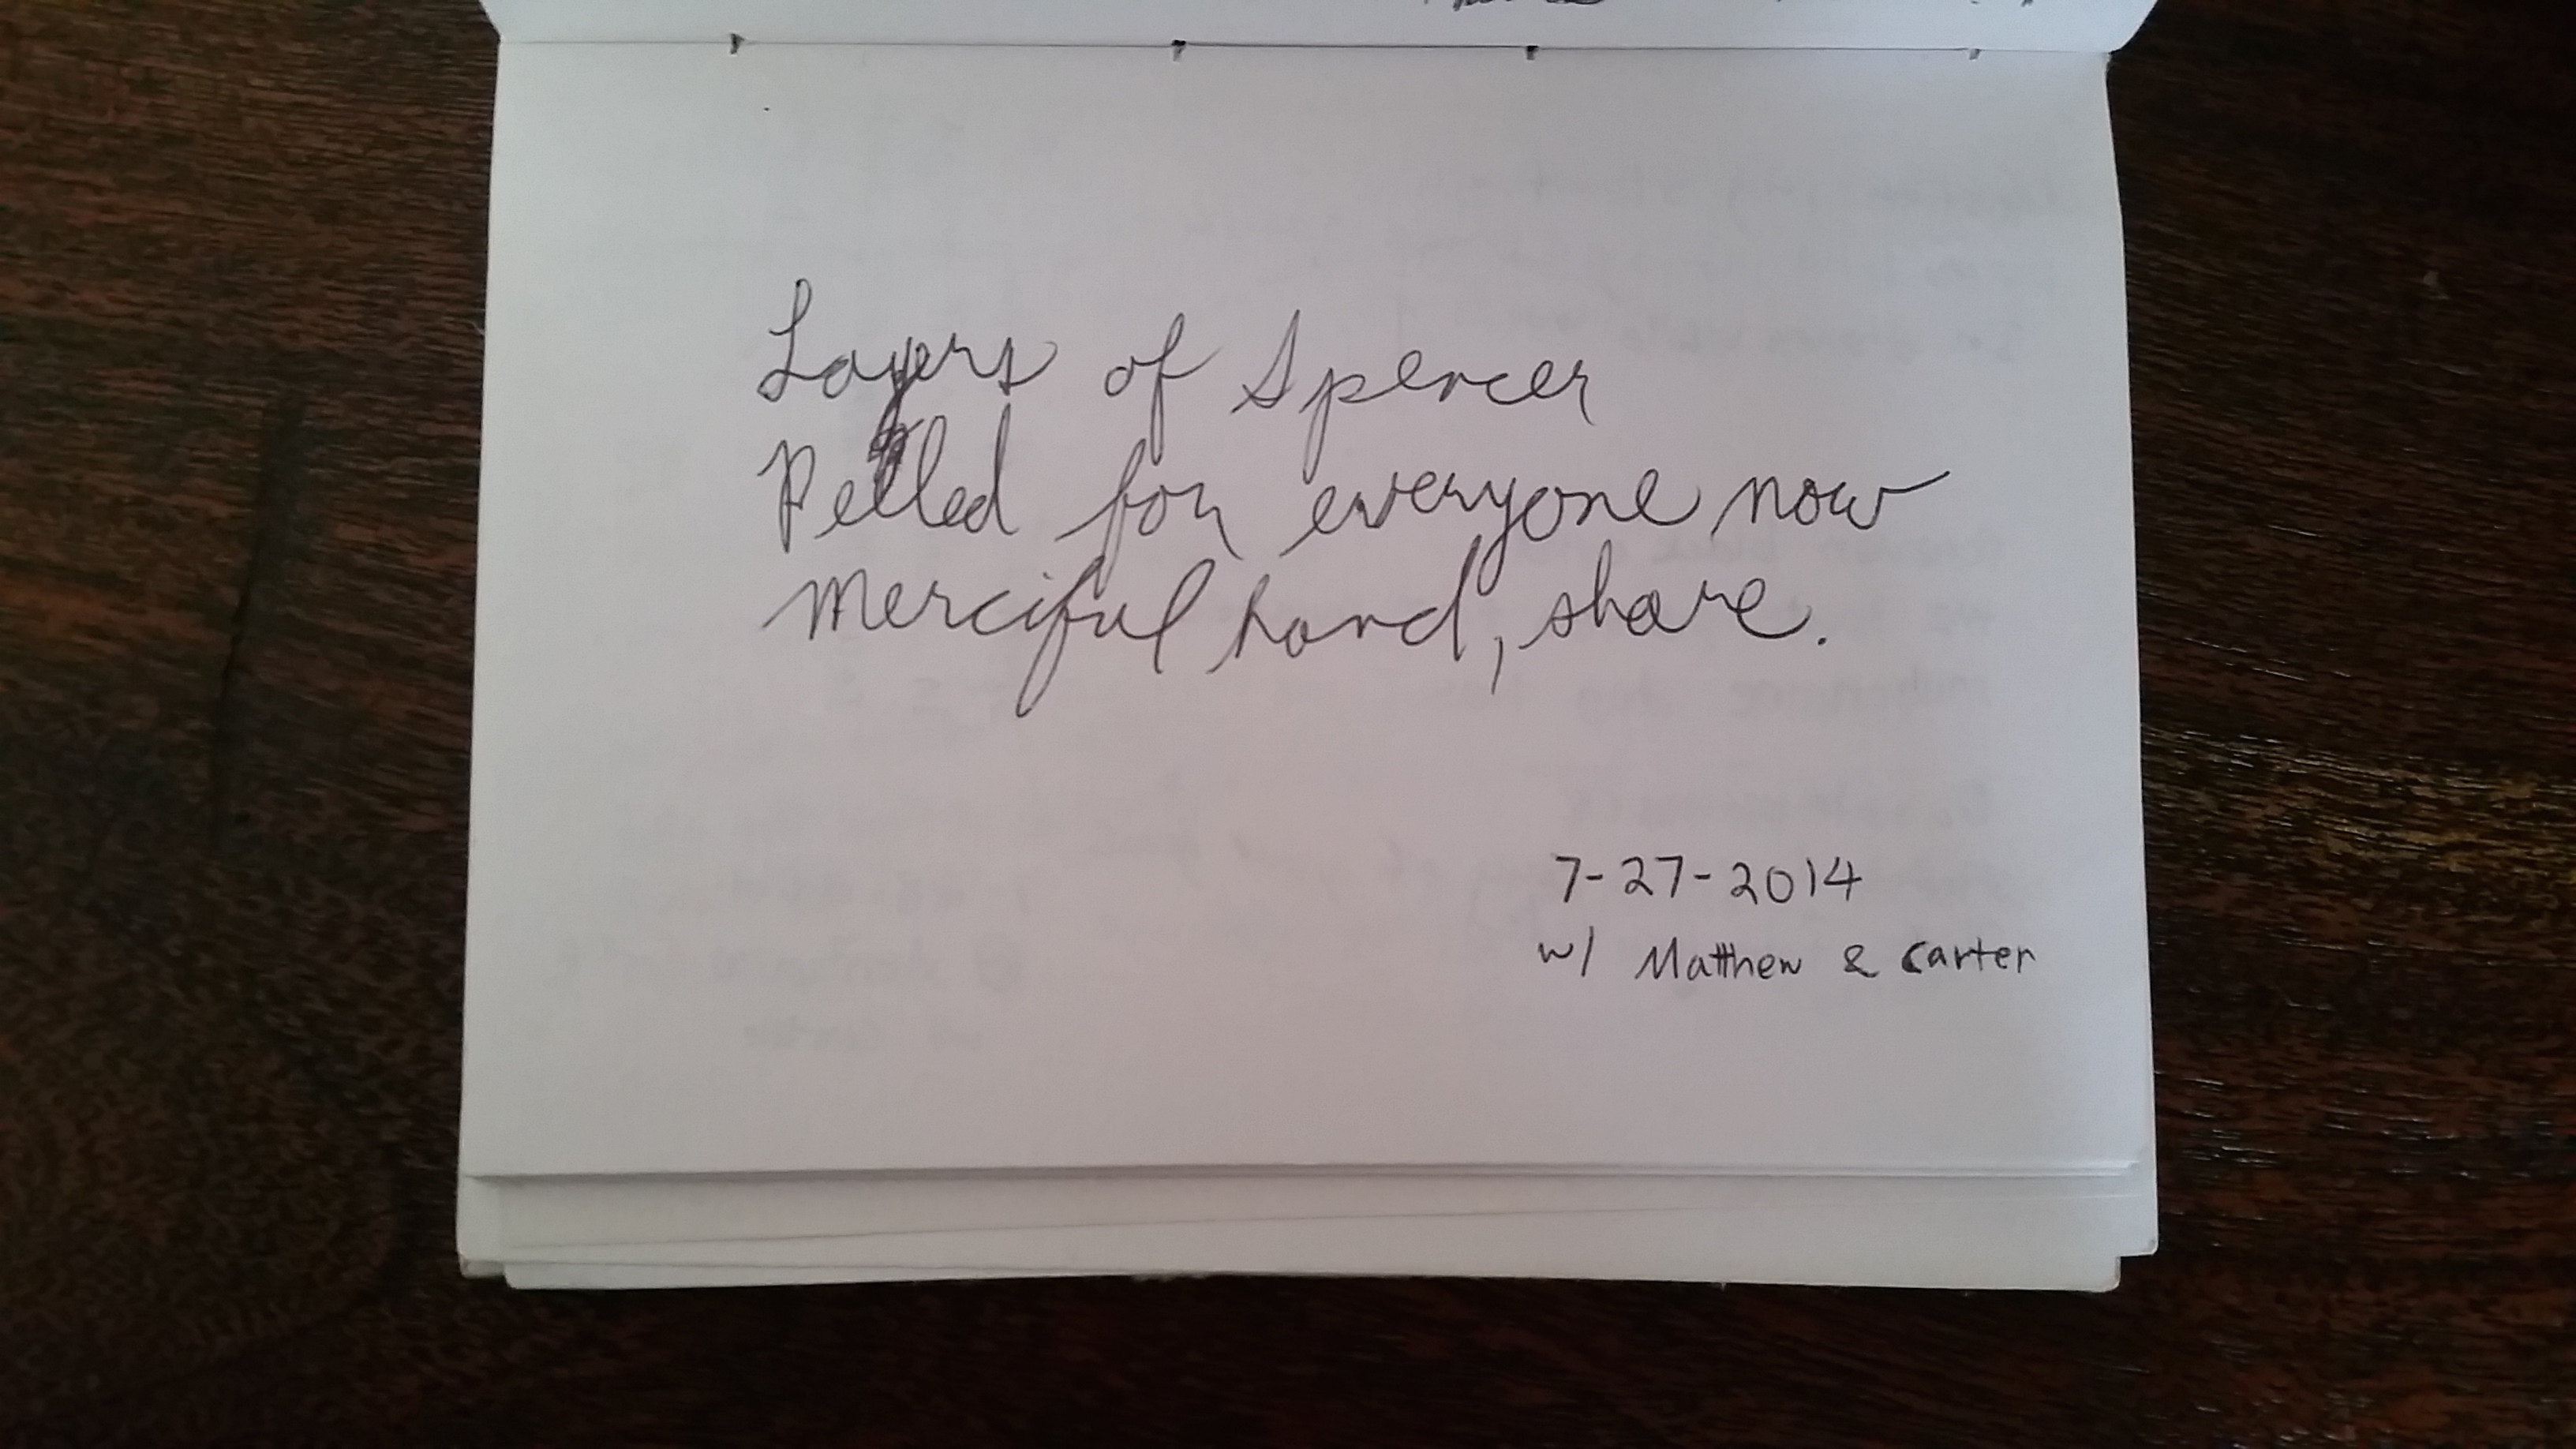 Layers of Spencer
Pelled for everyone now
merciful hand, share.
7-27-2014
w/ Matthew & Carter